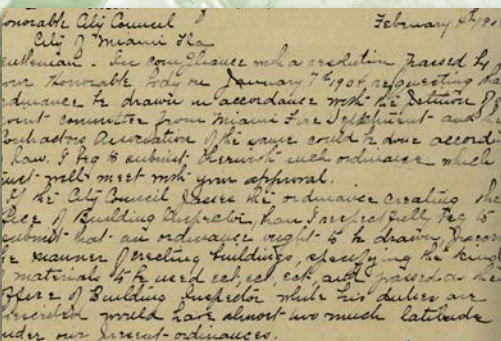 onorable City Council
February 4th 190
City of Miami Fla
entlemen. In compliance with a resolution passed by
our Honorable body on January 7th 1904 requesting that
ordinance be drawn in accordance with the Petition of
joint committee from Miami Fire Department and the
ontractors Association if the same could be done accordi
law. I beg to submit herewith such ordinance which
rust will meet with your approval.
If the City Council passes the ordinance creating the
ffice of Building Inspector, than I respectfully beg to
submit that an ordinance ought to be drawn,
e manner of erecting buildings, specifying the kind
materials to be used ect, ect, ect, and passed as the
Office of Building Inspector while his duties are
prescribed would have almost two much latitude
under our present ordinances.